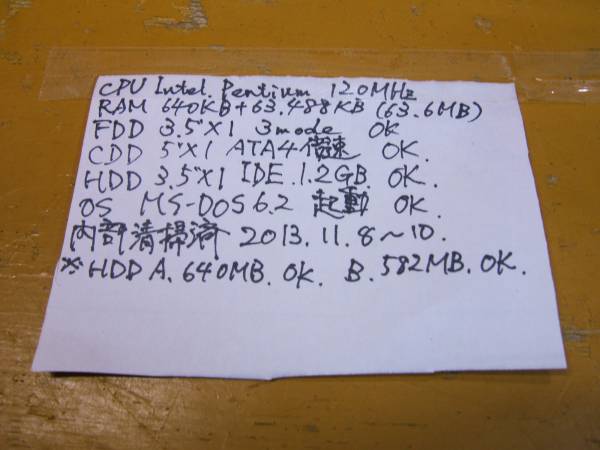 CPU Intel. Pentium 120MHz
RAM 640KB+63.488KB (63.6MB)
FDD 3.5"X1 3mode OK
CDD 5"X1 ATA4倍速 OK.
HDD 3.5"X1 IDE.1.2GB OK.
OS MS-DOS6.2 起動 OK.
内部清掃済 2013.11.8~10.
※HDD A.640MB.OK. B.582MB.OK.